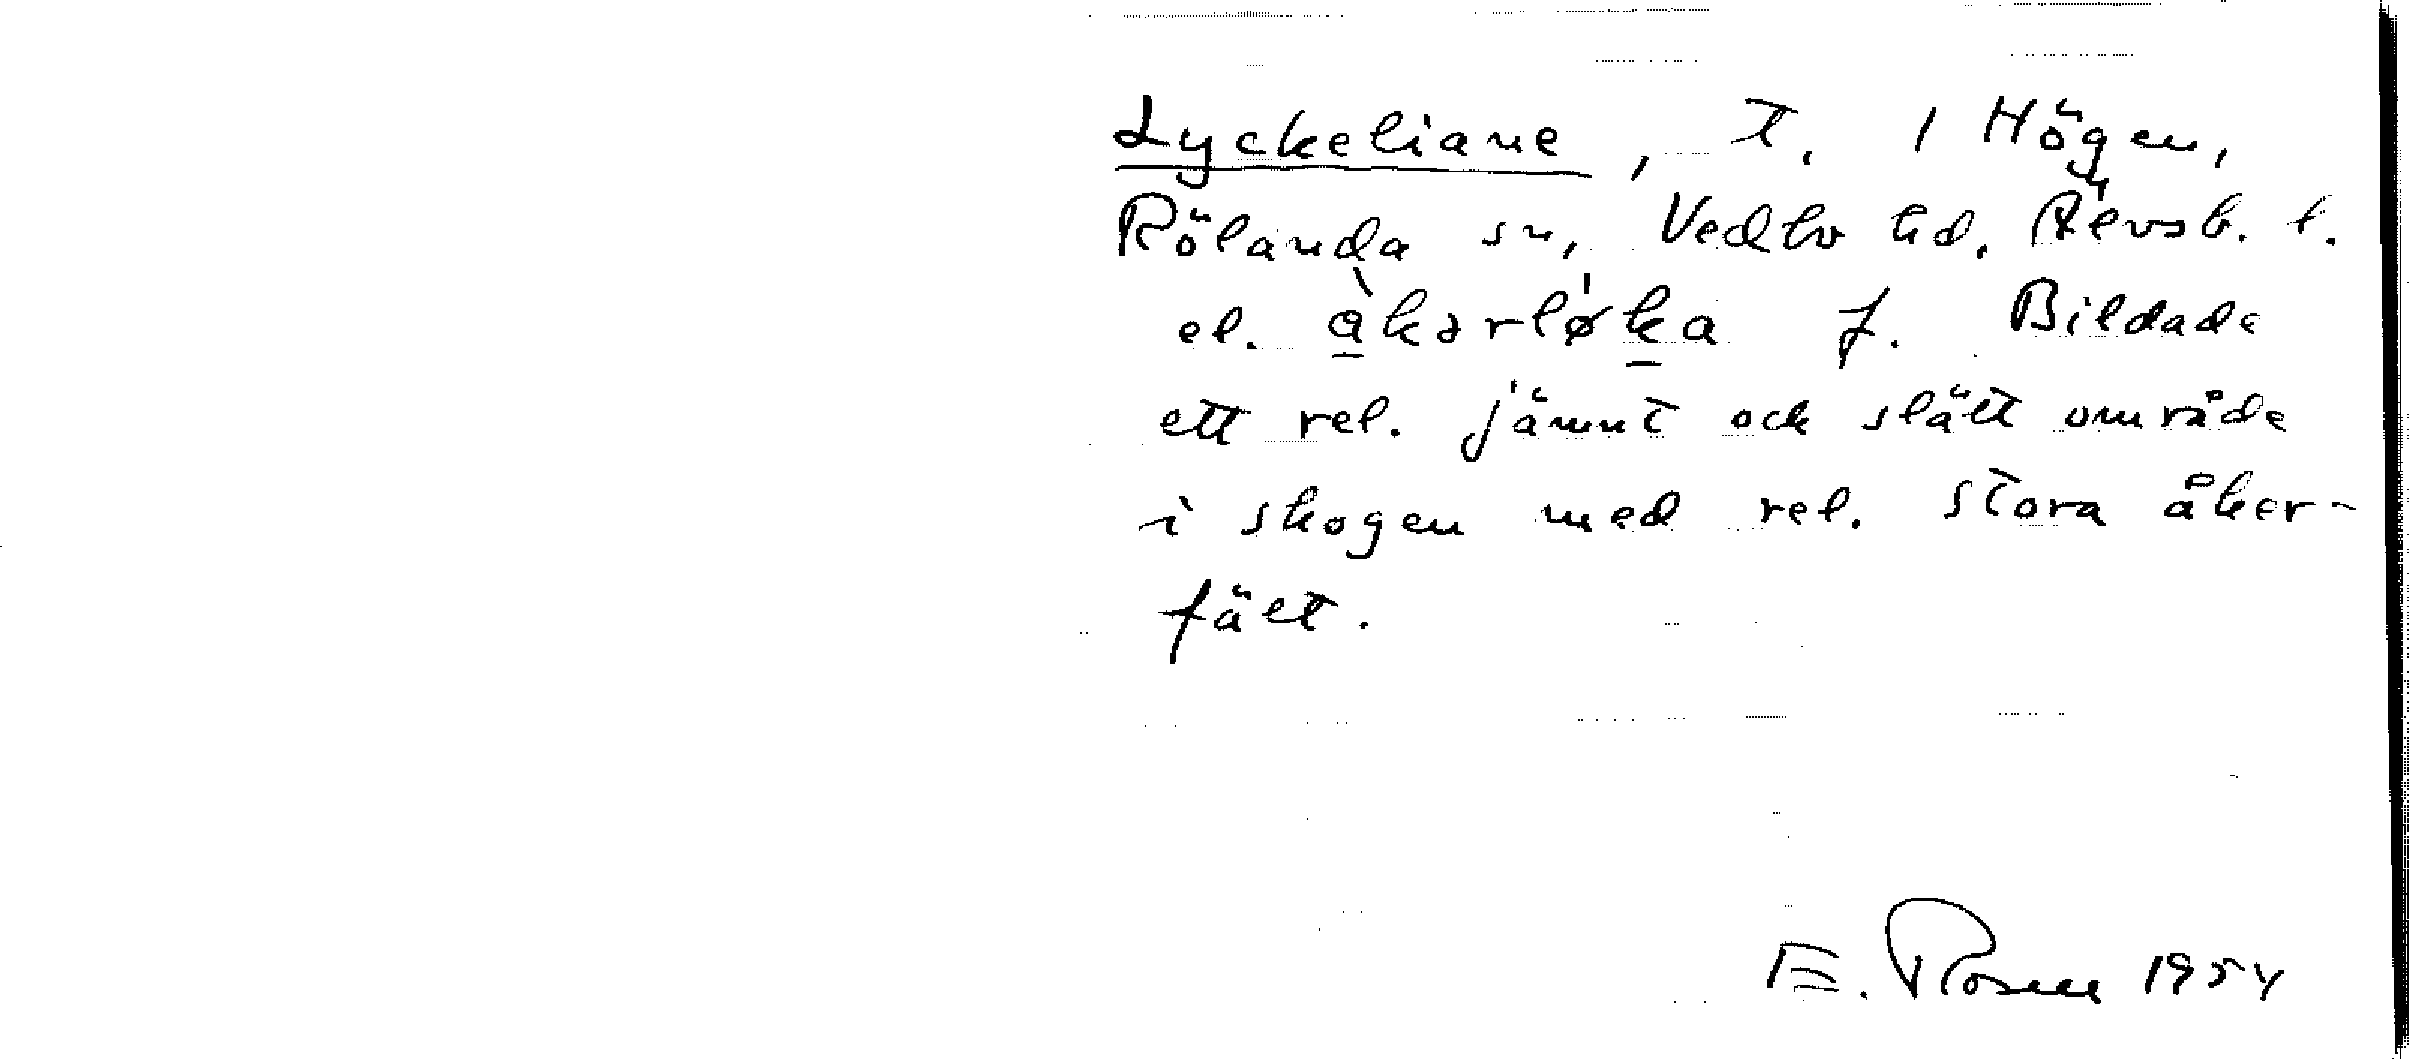 Lyckeliane, t. i Högen,
Rölanda sn, Vedbo hd, Älvsb. l.
el. àkərlø̍ka f. Bildade
ett rel. jämnt och slätt område
i skogen med rel. stora åker-
fält.
E. Rosen 1954